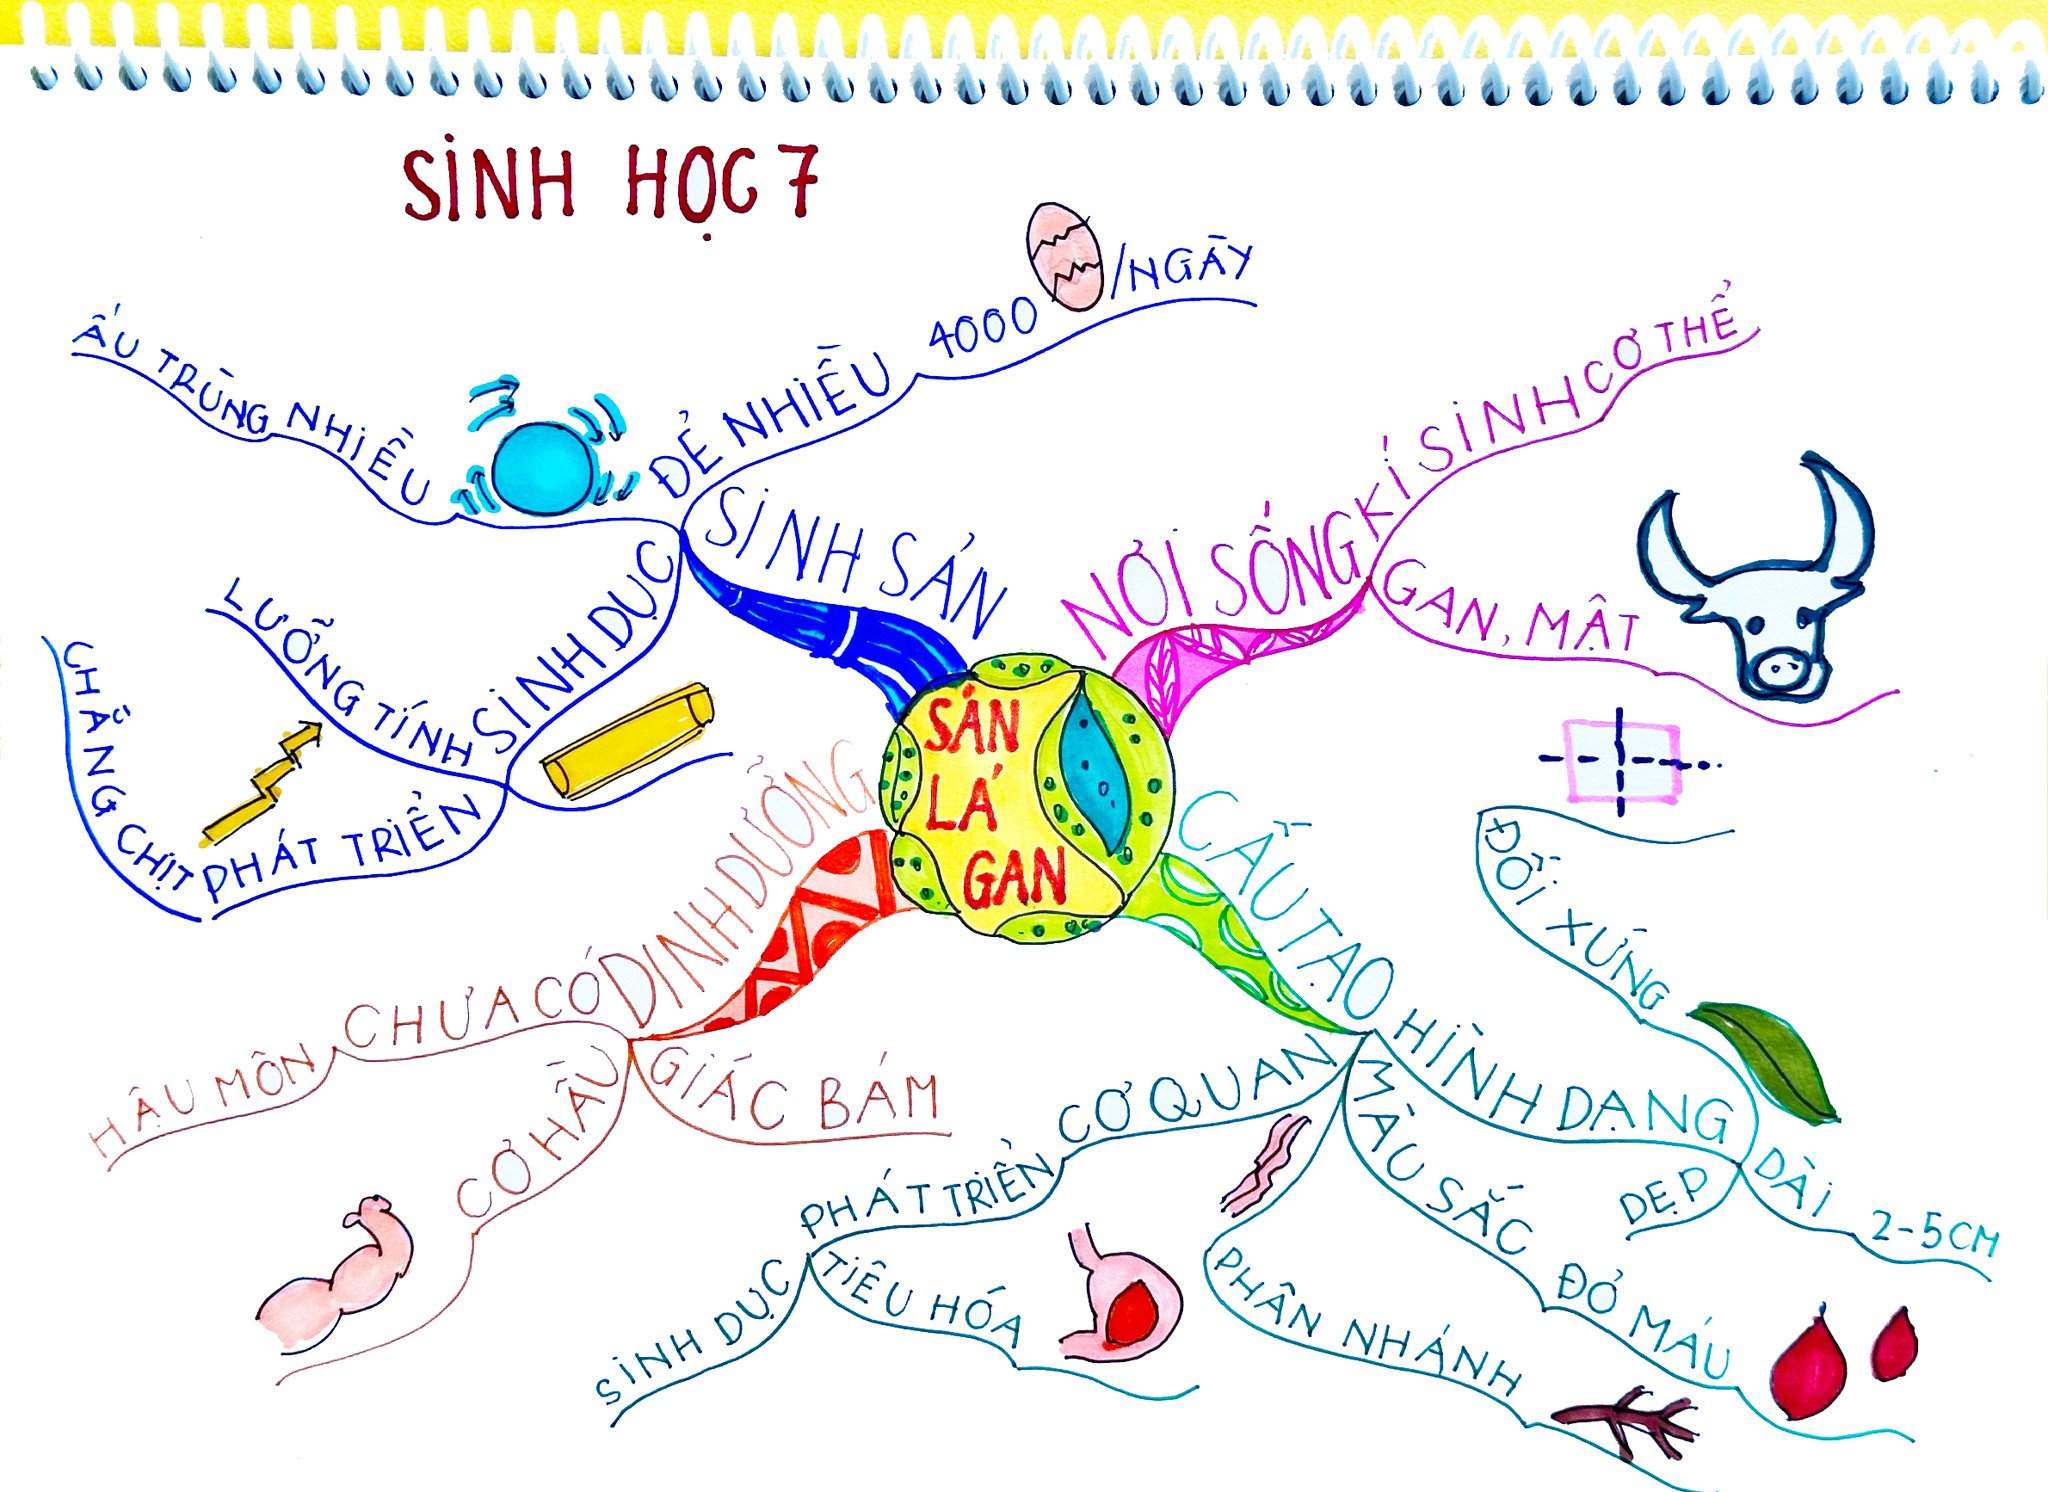 SINH HỌC 7
SÁN
LÁ
GAN
NƠI SỐNG
KÍ SINH CƠ THỂ
GAN, MẬT
CẤU TẠO
HÌNH DẠNG
ĐỐI XỨNG
DẸP
DÀI 2-5CM
MÀU SẮC ĐỎ MÁU
PHÂN NHÁNH
CƠ QUAN
PHÁT TRIỂN
TIÊU HÓA
SINH DỤC
DINH DƯỠNG
GIÁC BÁM
CƠ HẦU
CHƯA CÓ HẬU MÔN
SINH SẢN
ĐẺ NHIỀU 4000 /NGÀY
ẤU TRÙNG NHIỀU
SINH DỤC
LƯỠNG TÍNH
PHÁT TRIỂN
CHẰNG CHỊT